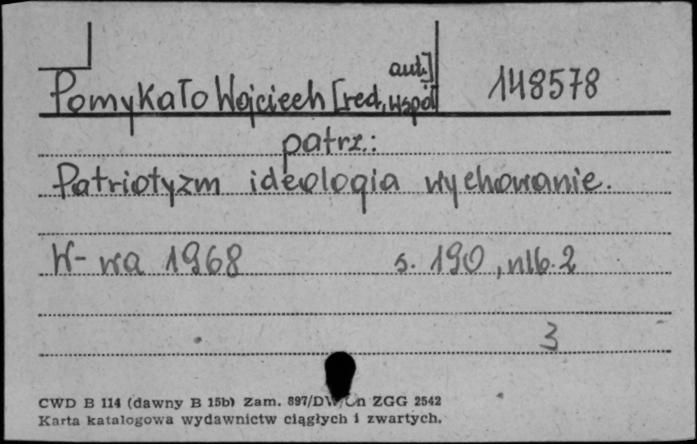 Pomykało Wojciech [red., współ aut.] 148578
patrz:
Patriotyzm ideologia wychowanie.
W-wa 1968 s. 190, nlb. 2
3
CWD B 114 (dawny B 15b) Zam. 897/DW/Cn ZGG 2542
Karta katalogowa wydawnictw ciągłych i zwartych.